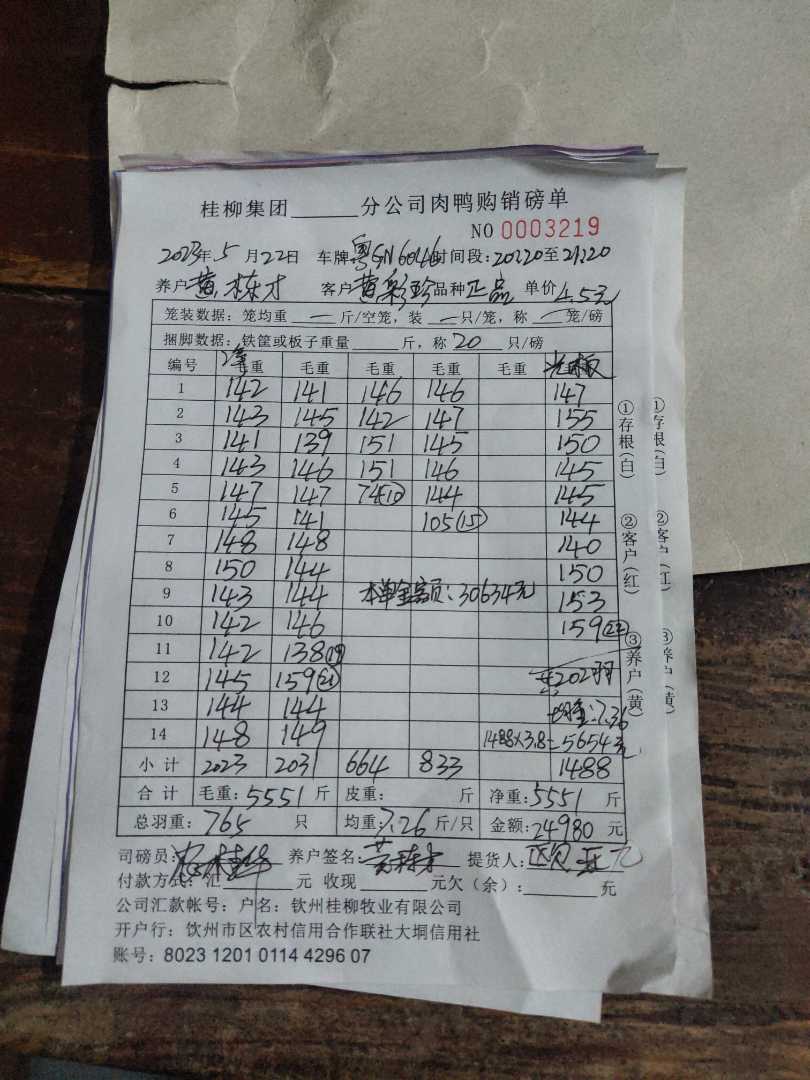 桂柳集团______分公司肉鸭购销磅单
NO 0003219
2023年5月22日 车牌:粤GN6046时间段:20:20至21:20
养户 黄栋才 客户 黄彩珍 品种 正品 单价 4.5元
笼装数据: 笼均重 — 斤/空笼, 装 — 只/笼, 称 — 笼/磅
捆脚数据: 铁筐或板子重量______斤, 称 20 只/磅
编号 净重 毛重 毛重 毛重 毛重 光板
1 142 141 146 146 147
2 143 145 142 147 155
3 141 139 151 145 150
4 143 146 151 146 145
5 147 147 74⑩ 144 145
6 145 141 105⑮ 144
7 148 148 140
8 150 144 150
9 143 144 本单金额:30634元 153
10 142 146 159㉒
11 142 138⑲
12 145 159㉑ 共202羽
13 144 144 均重:7.36
14 148 149 1488×3.8=5654元
小计 2023 2031 664 833 1488
合计 毛重:5551斤 皮重: 斤 净重:5551斤
总羽重:765只 均重:7.26斤/只 金额:24980元
司磅员: 养户签名: 黄栋才 提货人:
付款方式: 汇______元 收现______元欠(余):______元
公司汇款帐号: 户名: 钦州桂柳牧业有限公司
开户行: 钦州市区农村信用合作联社大垌信用社
账号: 8023 1201 0114 4296 07
①存根(白) ②客户(红) ③养户(黄)
①存根(白) ②客户(红) ③养户(黄)